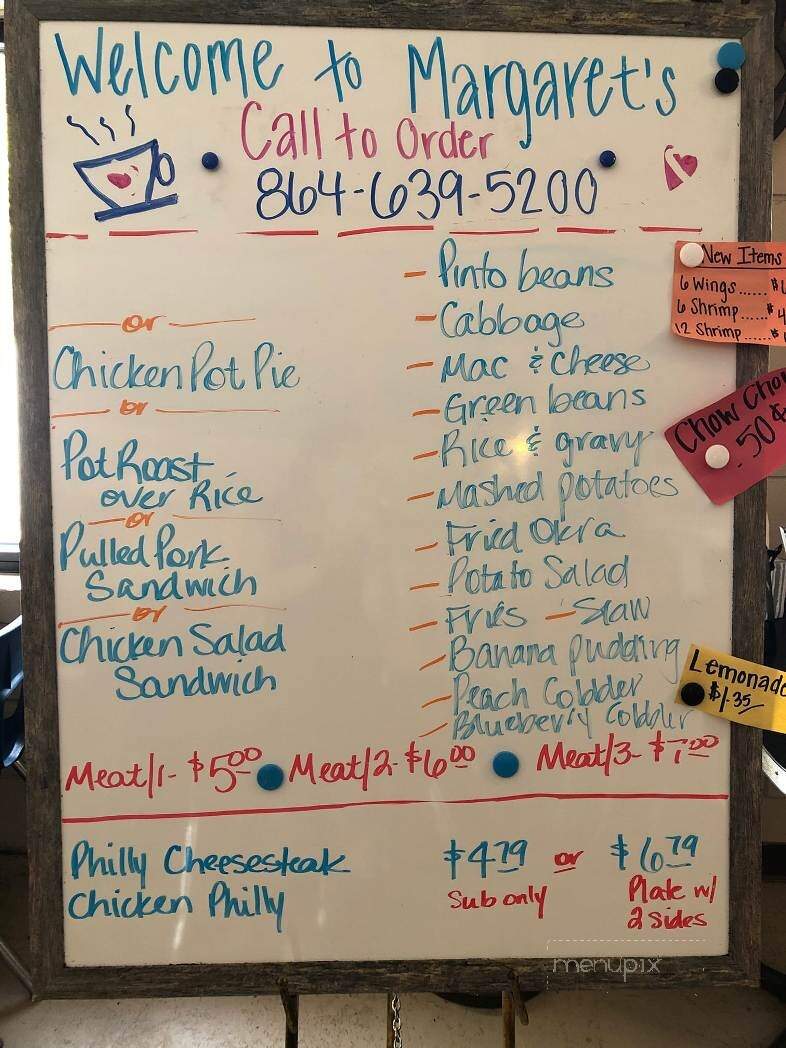 Welcome to Margaret's
Call to Order
864-639-5200
or
Chicken Pot Pie
or
Pot Roast
over Rice
or
Pulled Pork
Sandwich
or
Chicken Salad
Sandwich
- Pinto beans
- Cabbage
- Mac & Cheese
- Green beans
- Rice & gravy
- Mashed potatoes
- Fried Okra
- Potato Salad
- Fries - Slaw
- Banana pudding
- Peach Cobbler
- Blueberry Cobbler
New Items
6 Wings......
6 Shrimp.....
12 Shrimp....
Chow Chow
.50¢
Lemonade
$1.35
Meat/1- $5.00 Meat/2- $6.00 Meat/3- $7.00
Philly Cheesesteak $4.79 or $6.79
Chicken Philly Sub only Plate w/
2 Sides
menupix